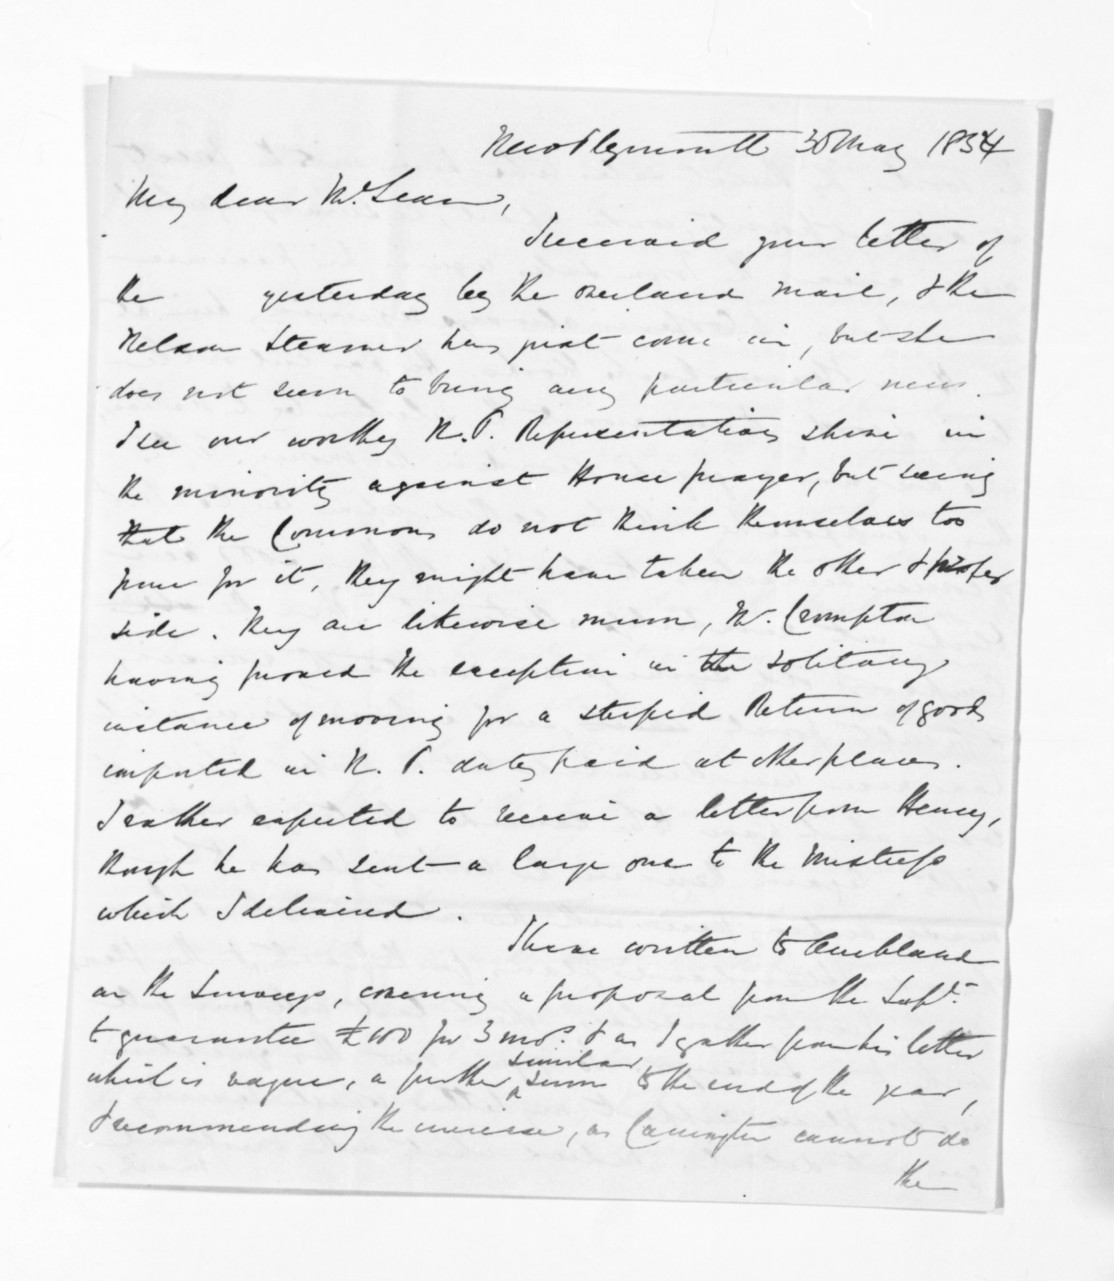 New Plymouth 30 May 1854
My dear McLean,
I received your letter of
the yesterday by the overland mail, & the
Nelson Steamer has just come in, but she
does not seem to bring any particular news.
I see our worthy N.P. Representatives shine in
the minority against House prayer, but seeing
that the Commons do not think themselves too
pure for it, they might have taken the other & proper
side. They are likewise mum, Mr. Crompton
having proved the exception in the solitary
instance of moving for a stupid Return of goods
imported in N.P. duty paid at other places.
I rather expected to receive a letter from Henry,
though he has sent a large one to the Mistress
which I delivered.
I have written to Auckland
on the Surveys, covering a proposal from the Supt.
to guarantee £100 for 3 mos. & as I gather from his letter
which is vague, a further similar sum to the end of the year,
& recommending the increase, as Carrington cannot do
the